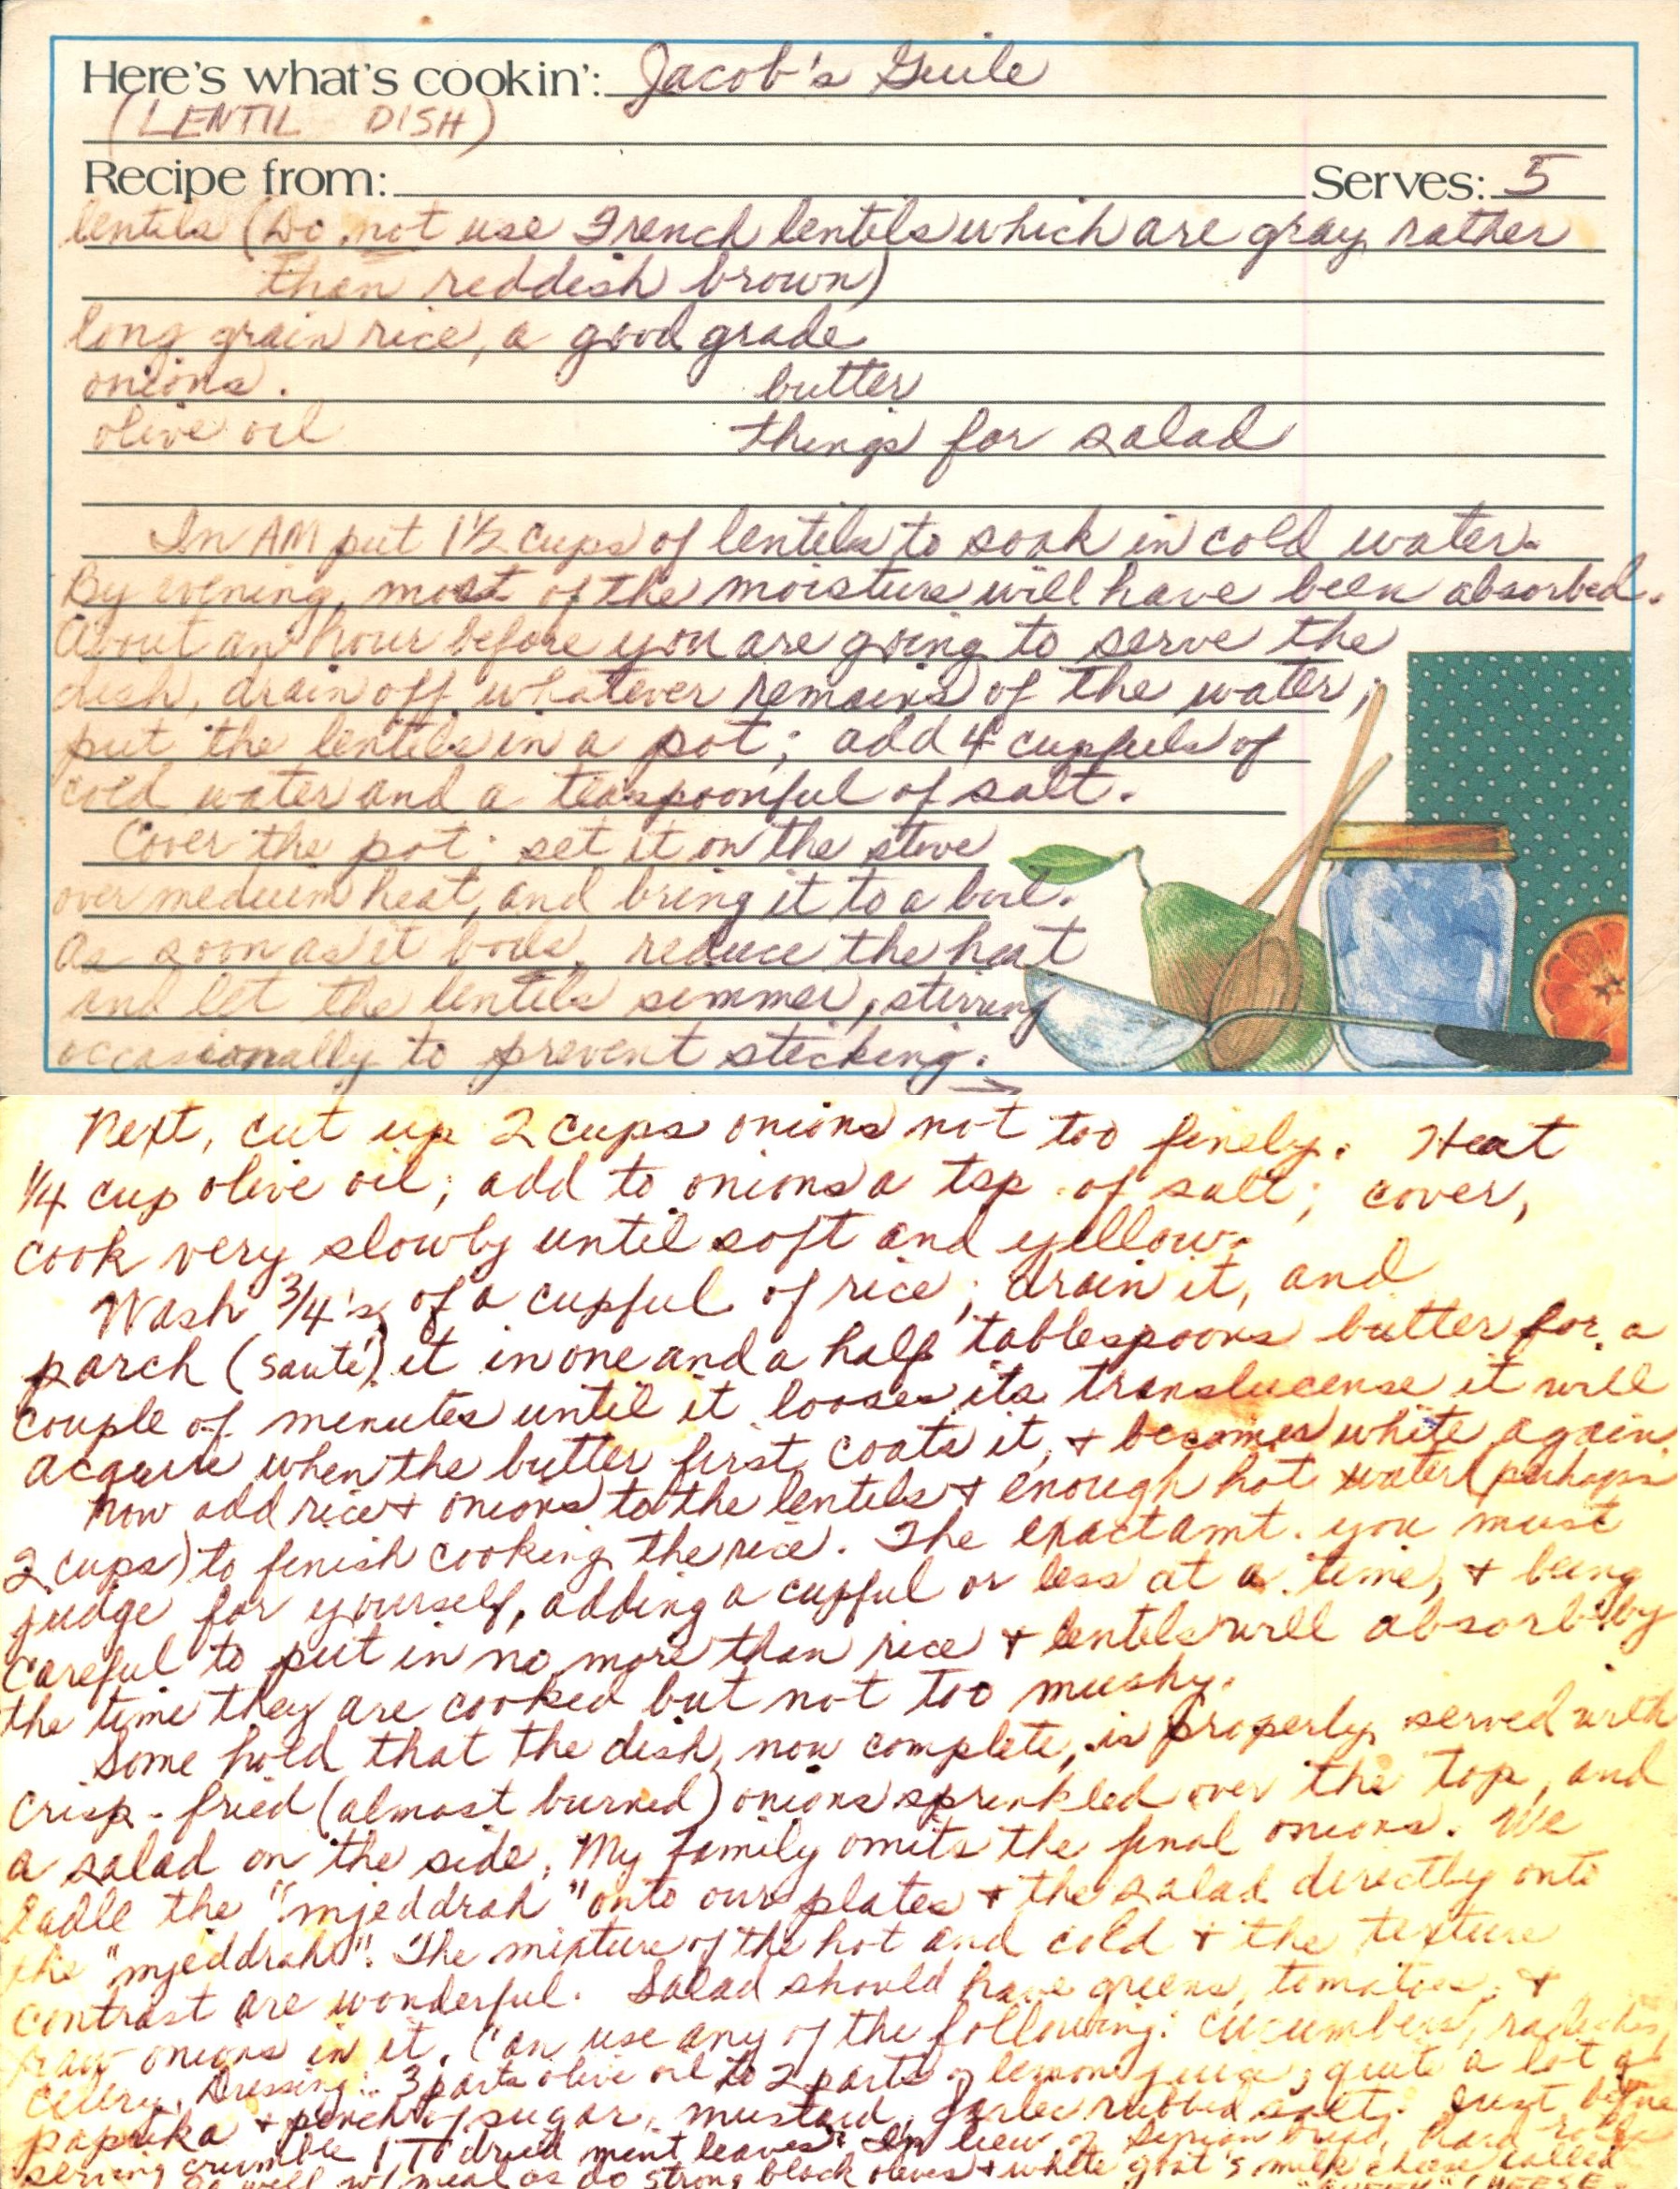 Here's what's cookin': Jacob's Guile
(LENTIL DISH)
Recipe from: Serves: 5
lentils (Do not use French lentils which are gray rather
than reddish brown)
long grain rice, a good grade
onions. butter
olive oil things for salad
In AM put 1½ cups of lentils to soak in cold water.
By evening, most of the moisture will have been absorbed.
About an hour before you are going to serve the
dish, drain off whatever remains of the water;
put the lentils in a pot; add 4 cupfuls of
cold water and a teaspoonful of salt.
Cover the pot; set it on the stove
over medium heat, and bring it to a boil.
As soon as it boils, reduce the heat
and let the lentils simmer, stirring
occasionally to prevent sticking. →
Next, cut up 2 cups onions not too finely. Heat
1/4 cup olive oil; add to onions a tsp. of salt; cover,
cook very slowly until soft and yellow.
Wash 3/4's of a cupful of rice; drain it, and
parch (sauté) it in one and a half tablespoons butter for a
couple of minutes until it looses its translucense it will
acquire when the butter first coats it, + becomes white again.
Now add rice + onions to the lentils + enough hot water (perhaps
2 cups) to finish cooking the rice. The exact amt. you must
judge for yourself, adding a cupful or less at a time, + being
careful to put in no more than rice + lentils will absorb by
the time they are cooked but not too mushy.
Some hold that the dish, now complete, is properly served with
crisp-fried (almost burned) onions sprinkled over the top, and
a salad on the side. My family omits the final onions. We
ladle the "mjeddrah" onto our plates + the salad directly onto
the "mjeddrah". The mixture of the hot and cold + the texture
contrast are wonderful. Salad should have greens, tomatoes, +
raw onions in it. Can use any of the following: cucumbers, radishes,
celery. Dressing: 3 parts olive oil to 2 parts lemon juice, quite a lot of
paprika + pinch of sugar, mustard, garlic rubbed salt. Just before
serving crumble 1 T dried mint leaves. In lieu of Syrian bread, hard rolls
go well w/ meal as do strong black olives + white goat's milk cheese called
CHEESE.